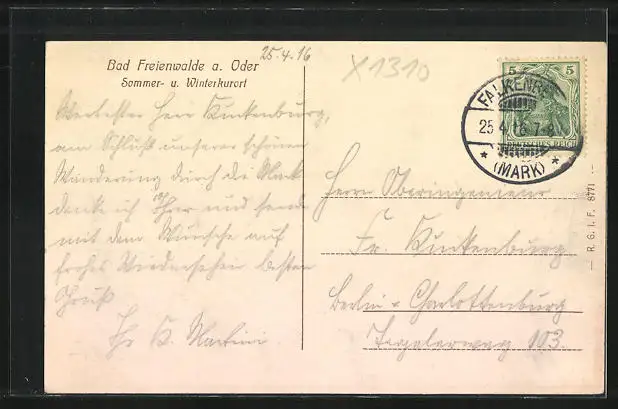 25.4.16
Bad Freienwalde a. Oder
Sommer- u. Winterkurort
X1310
5 5
DEUTSCHES REICH
FALKENBERG
25.4.16.7-8
* (MARK) *
Wertester Herr Kuckenburg,
am Schluß unserer schönen
Wanderung durch die Mark
denke ich Ihrer und sende
mit dem Wunsche auf
frohes Wiedersehen besten
Gruß
Ihr K. Martini
Herrn Oberingenieur
Fr. Kuckenburg
Berlin-Charlottenburg
Tegelerweg 103.
— R. G. I. F. 8771 —